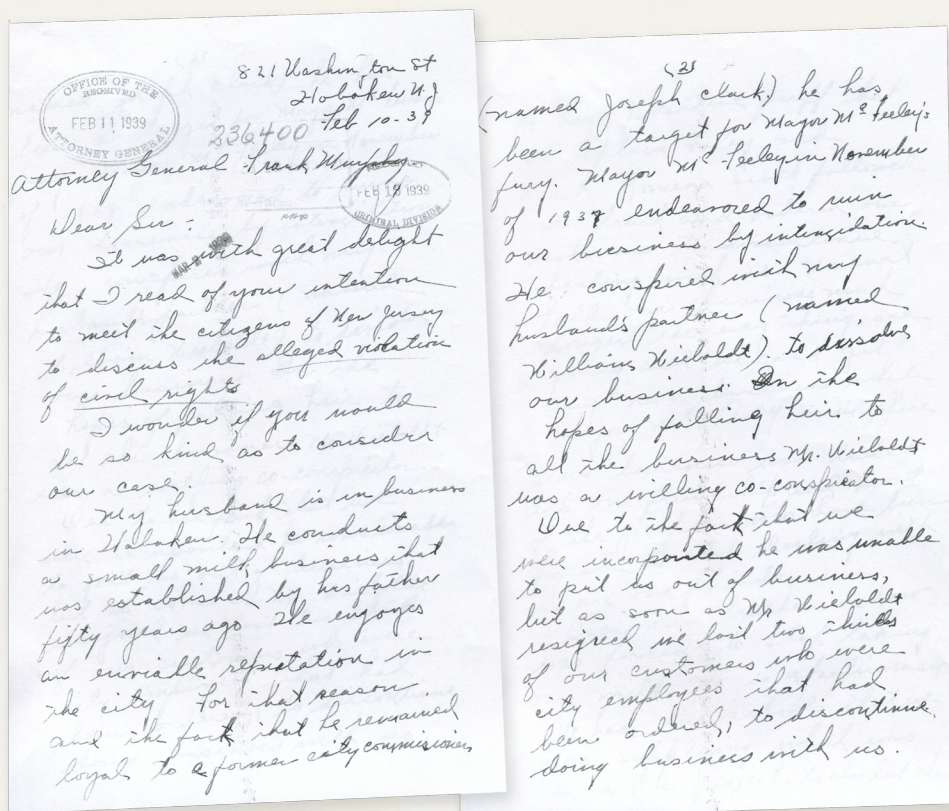 821 Washington St
Hoboken N.J
Feb 10-39
OFFICE OF THE
RECEIVED
FEB 11 1939
ATTORNEY GENERAL
236400
Attorney General Frank Murphy
FEB 18 1939
CRIMINAL DIVISION
Dear Sir:
It was with great delight
that I read of your intention
to meet the citizens of New Jersey
to discuss the alleged violation
of civil rights
I wonder if you would
be so kind as to consider
our case.
My husband is in business
in Hoboken. He conducts
a small milk business that
was established by his father
fifty years ago He enjoyes
an enviable reputation in
the city For that reason
and the fact that he remained
loyal to a former city commissioner
(2)
(named Joseph Clark) he has
been a target for Mayor McFeeley's
fury. Mayor McFeeley in November
of 1937 endeavored to ruin
our business by intimidation
He conspired with my
husband's partner (named
William Nieboldt) to dissolve
our business. In the
hopes of falling heir to
all the business Mr. Nieboldt
was a willing co-conspirator.
Due to the fact that we
were incorporated he was unable
to put us out of business,
but as soon as Mr Nieboldt
resigned we lost two thirds
of our customers who were
city employees that had
been ordered, to discontinue
doing business with us.